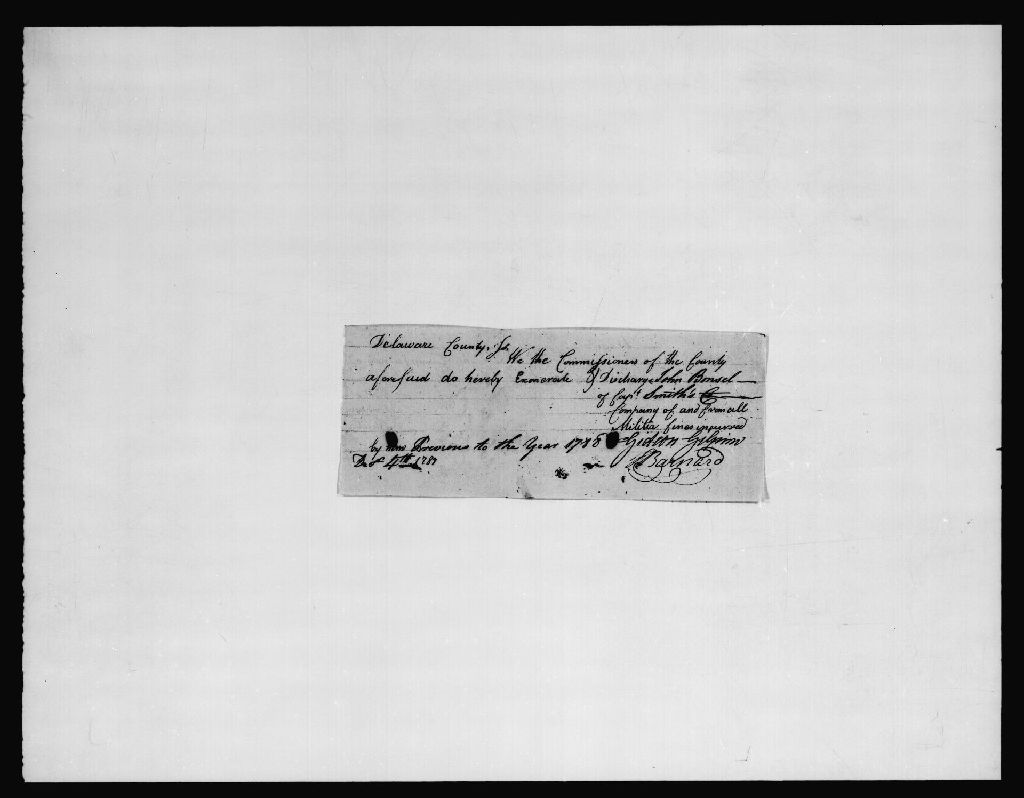 Delaware County, Ss.
We the Commissioners of the County
aforesaid do hereby Exonerate & Discharge John Bonsel
of Capt. Smith's
Company of and from all
Militia fines incurred
by him Previous to the Year 1785 Gideon Gilpin
Decr 4th 1787 Barnard